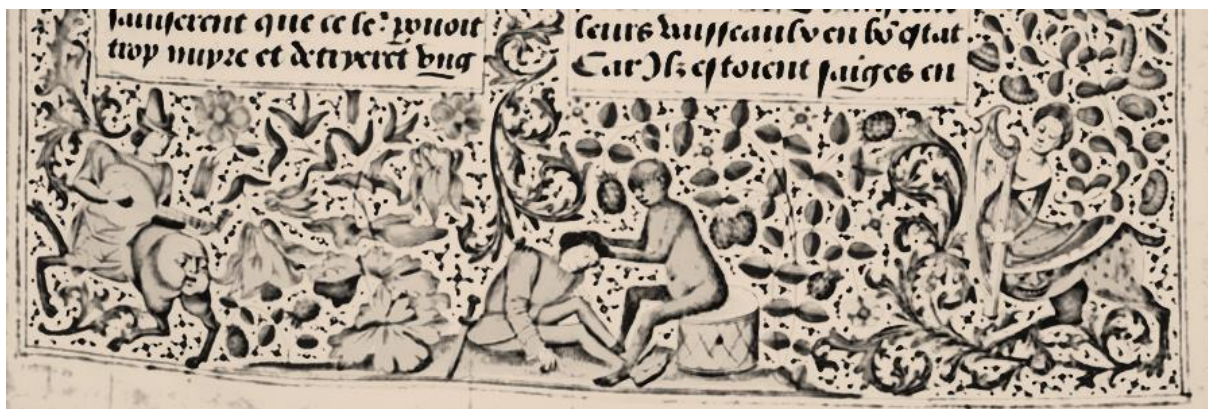 sauiserent que ce le² pouoit
trop nuyre et detryerēt vng
leurs vaisseaulx en bõ estat
Car Ilz estoient saiges en